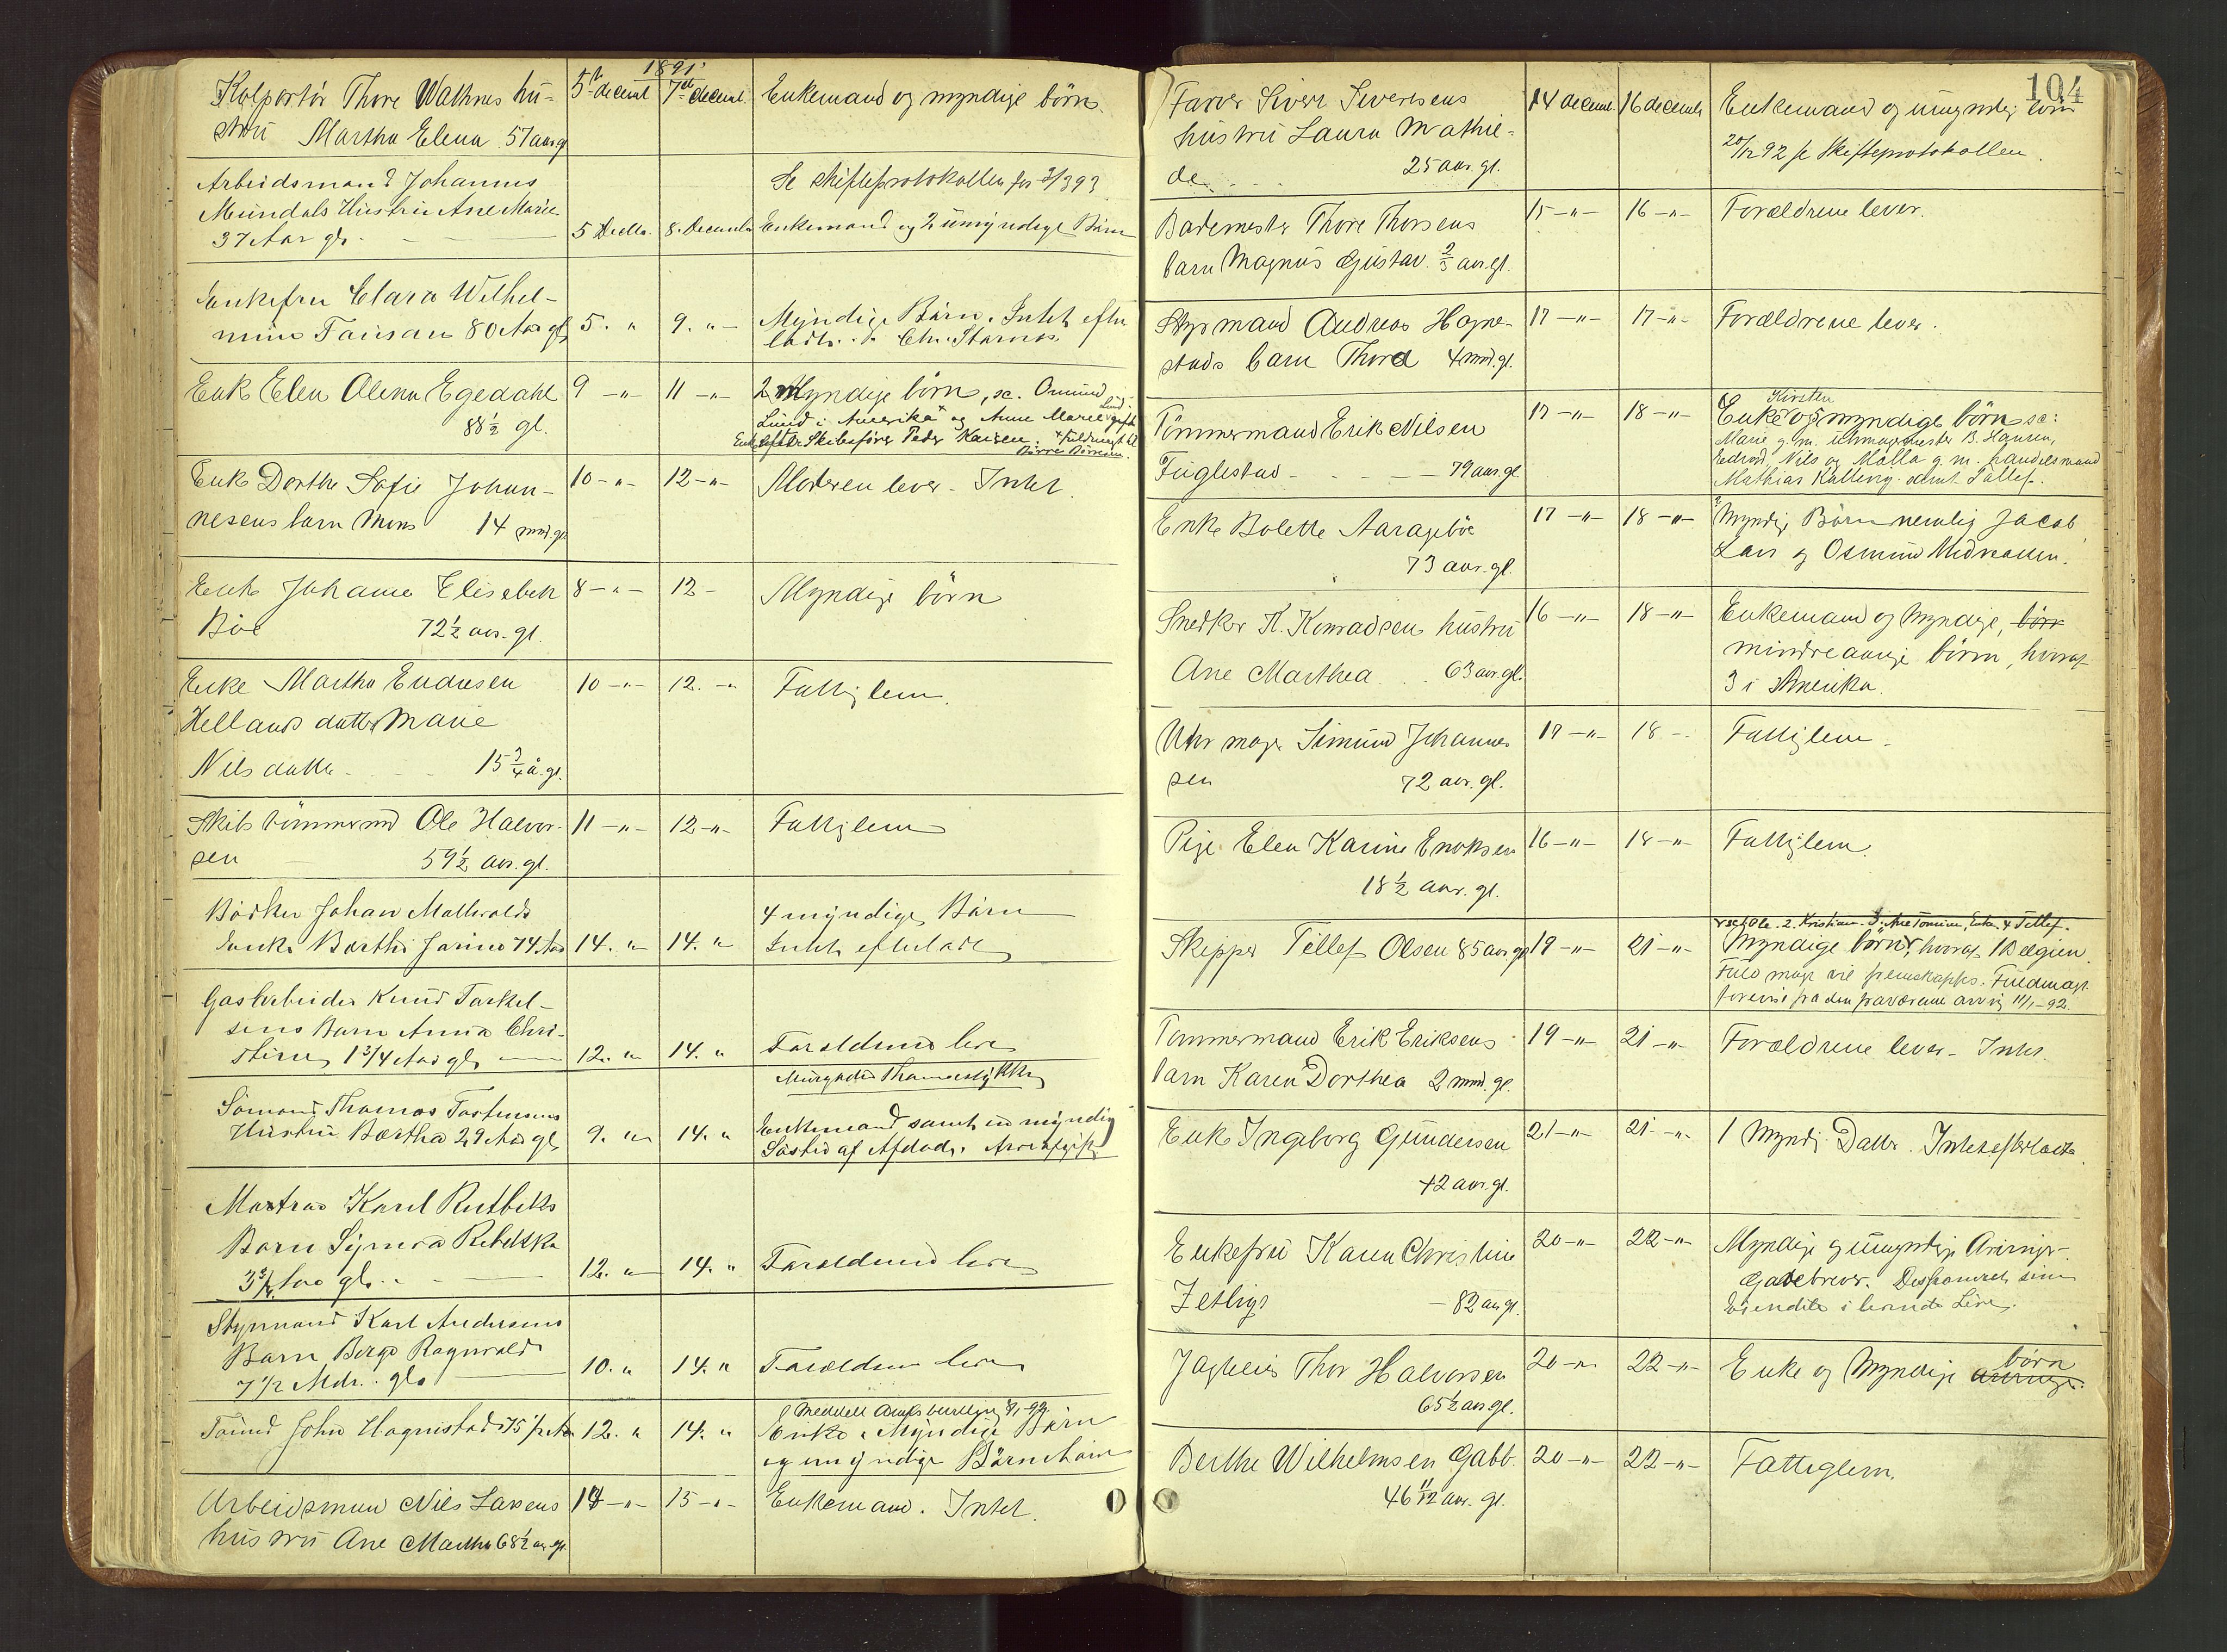 1891.
Kolportör Thore Wathnes hu- 5te decembr 7de decembr. Enkemand og myndige börn.
stru Martha Elena 57 aar gl
Arbeidsmand Johannes Se skifteprotokollen for 3/3 93
Mundals Hustru Ane Marie
37 Aar gl. 5 Decbr. 8. Decembr Enkemand og 2 umyndige Börn
Enkefru Clara Wilhel-
mine 80 Aar gl. 5. " 9. " Myndige Börn. Intet efter
ladt.
Enke Elen Olena Egedahl 9 -"- 11 -"- 2 Myndige börn, sc. Osmund
88½ gl. Lund i Amerika og Anne Marie gift
Enke efter Skibsförer Peder
Enke Dorthe Sofie Johan- 10 -"- 12 -"- Moderen lever - Intet.
nesens barn Mons 14 mnd. gl
Enke Johanne Elisabeth 8 -"- 12 - Myndige börn
Böe 72½ aar. gl.
Enke Martha Endresen 10 -"- 12. -"- Fattiglem.
Hellands datter Marie
Nilsdatter 15¾ å. gl.
Skibstömmermd Ole Halvor- 11 -"- 12 -"- Fattiglem
sen 59½ aar. gl.
Bödker Johan 4 myndige Börn
Enke Barthe 74 Aar 14. " 14. " Intet efterladt
Gasarbeider Knud Torkel-
sens Barn Anna Chri-
stine 1¾ Aar gl. 12. " 14. " Forældrene lever
Sömand Thomas Torstensens Enkemand samt en myndig
Hustru Bertha 29 Aar gl. 9. " 14. " Söster af Afdöde. Arveafgift
Matros Karl
Barn Signora Rebekka
3¾ Aar gl. 12. " 14. " Forældrene lever
Styrmand Karl Andersens
Barn Borge Ragnvald
7½ Mdr. gl. 10. " 14. " Forældrene lever
John Hognestad 75½ Aar 12. " 14. " Enke & Myndige Börn
og umyndige Börnebörn
Arbeidsmand Nils Larsens 14 -"- 15 -"- Enkemand. Intet.
hustru Ane Martha 68½ aar gl.
104
Farver Siver Siversens 14 decembr. 16 decembr Enkemand og umyndig barn
hustru Laura Mathil- 20/12 92 se Skifteprotokollen.
de 25 aar. gl.
Bademester Thore Thorsens 15 -"- 16 -"- Forældrene lever.
barn Magnus Gustav ⅔ aar. gl.
Styrmand Andreas Hogne- 17 -"- 17 -"- Forældrene lever.
stads barn Thora 4 mnd. gl.
Kirsten
Tömmermand Erik Nilsen 17 -"- 18 -"- Enke og myndige börn sc:
Fuglestad 79 aar. gl Marie g. m. uhrmagermester B. Hansen,
Edvard, Nils og Malla g. m. handelsmand
Mathias samt Tollef.
Enke Bolette Aarageböe 17 -"- 18 -"- Myndige Börn nemlig Jacob,
73 aar. gl. Lars og Osmund
Snedker K. Konradsens hustru 16 -"- 18 -"- Enkemand og Myndige, börn
Ane Marthea 63 aar. gl. mindreaarige börn, hvoraf
3 i Amerika.
Uhrmager Simund Johannes 17 -"- 18 - Fattiglem -
sen 72 aar. gl.
Pige Elen Karine Enoksen 16 -"- 18 -"- Fattiglem.
18½ aar. gl.
Ole. 2. Kristian. 3. Ane Tomine, Enke. 4 Tollef.
Skipper Tollef Olsen 85 aar gl 19 -"- 21 -"- Myndige börn, hvoraf 1 Belgien.
Fuldmagt vil fremskaffes. Fuldmagt
forevist fra den fraværende arving 11/1-92.
Tömmermand Erik Eriksens 19 -"- 21 -"- Forældrene lever - Intet.
barn Karen Dorthea 2 mnd. gl.
Enke Ingeborg Gundersen 21 -"- 21 -"- 1 Myndig Datter. Intet efterladt.
42 aar. gl.
Enkefru Karen Christine 20 -"- 22 -"- Myndige og umyndige Arvinger.
Zetlitz 82 aar gl. Gavebrev. Disponeret sine
Eiendele i levende Live.
Thor Halvorsen 20 -"- 22 -"- Enke og Myndige arvinger. börn
65½ aar gl.
Berthe Wilhelmsen Gabb. 20 -"- 22 -"- Fattiglem.
46 11/12 aar. gl.